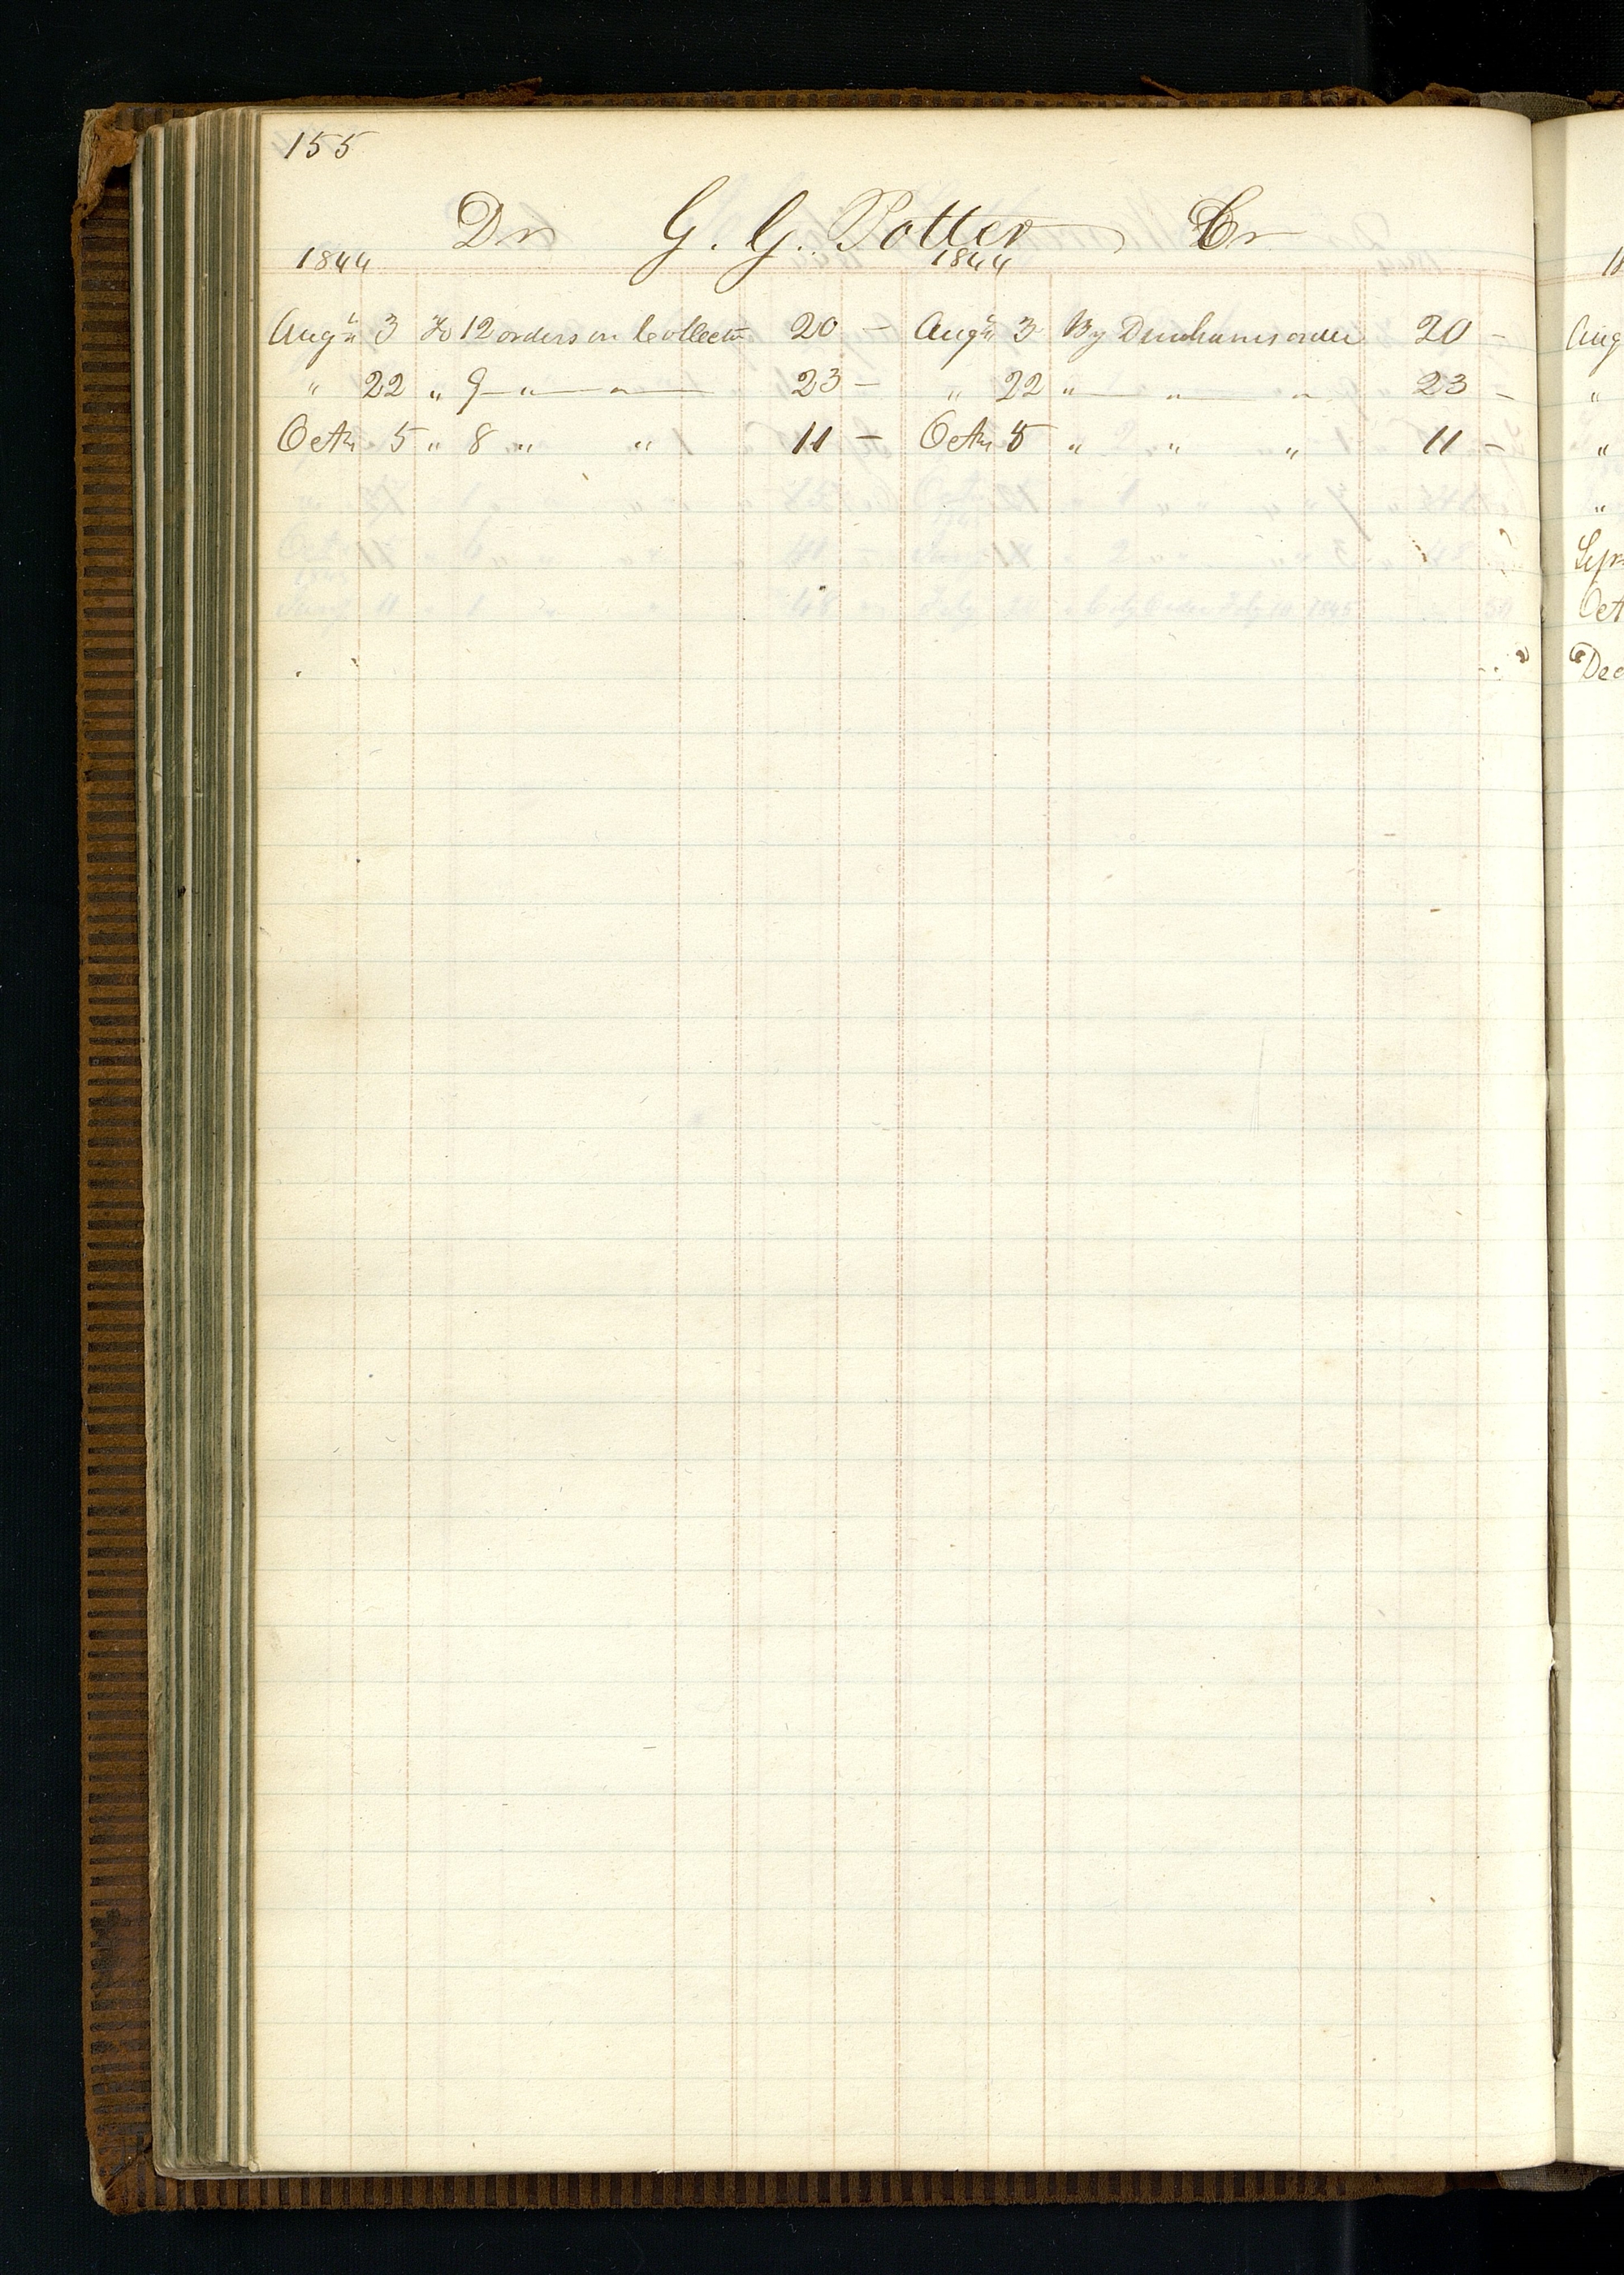 155
Dr G. G. Potter Cr
1844 1844
Augt 3 To 12 orders on Collector 20 – Augt 3 By Dunhams order 20 –
" 22 " 9 " " 23 – " 22 " " " 23 –
Octr 5 " 8 " " 11 – Octr 5 " " " 11 –
Aug
"
"
"
Sep
Oct
Dec